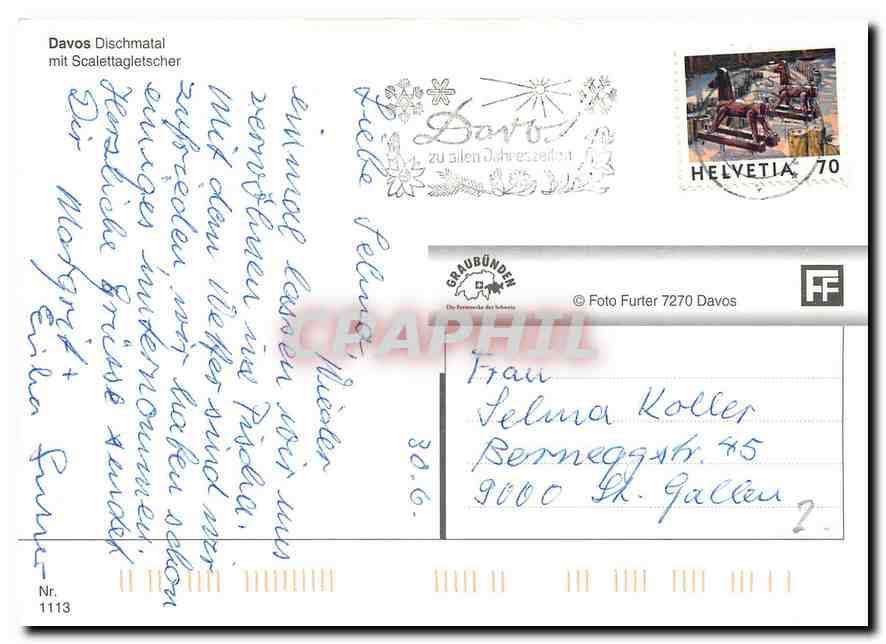 Davos Dischmatal
mit Scalettagletscher
Davos
zu allen Jahreszeiten
HELVETIA 70
GRAUBÜNDEN
Die Ferienecke der Schweiz
© Foto Furter 7270 Davos
FF
CPAPHIL
30.6.
Liebe Selma, Wieder
einmal lassen wir uns
verwöhnen in Pischa.
Mit dem Wetter sind wir
zufrieden, wir haben schon
einiges unternommen.
Herzliche Grüsse sendet
Dir Margrit +
Frau
Selma Koller
Berneggstr. 45
9000 St. Gallen
2.
Nr.
1113